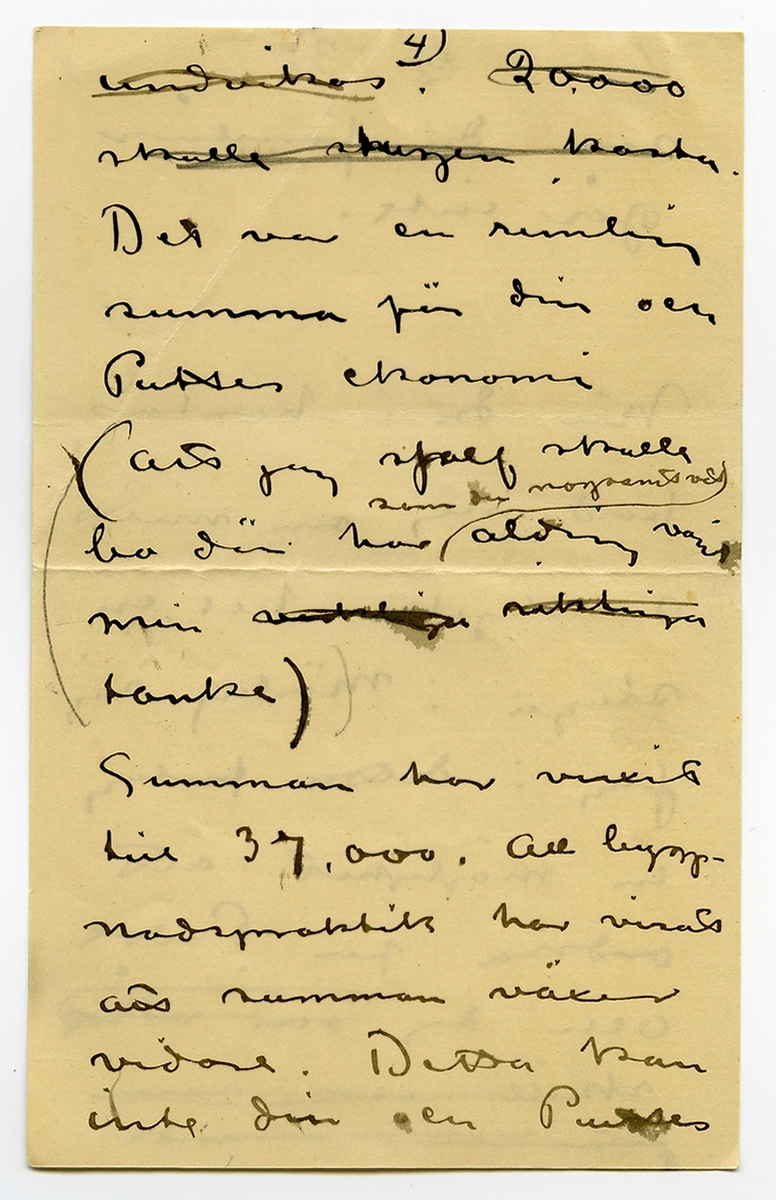 4)
undvikas. 20.000
skulle stugan kosta.
Det var en rimlig
summa för din och
Putsses ekonomi
(att jag sjelf skulle
som du nogsamt vet
bo där har (aldrig varit
min verkliga riktiga
tanke)
Summan har vuxit
till 37,000. All bygg-
nadspraktik har visat
att summan växer
vidare. Detta kan
inte din och Putsses